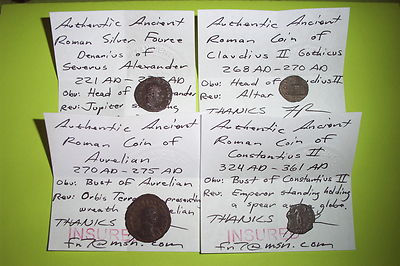 Authentic Ancient
Roman Silver Fouree
Denarius of
Severus Alexander
221 AD -
Obv: Head of
Rev: Jupiter
Authentic Ancient
Roman Coin of
Claudius II Gothicus
268 AD - 270 AD
Obv: Head of
Rev: Altar
THANKS
Authentic Ancient
Roman Coin of
Aurelian
270 AD - 275 AD
Obv: Bust of Aurelian
Rev: Orbis
wreath
THANKS
INSURE
fn7@msn.com
Authentic Ancient
Roman Coin of
Constantius II
324 AD - 361 AD
Obv: Bust of Constantius II
Rev: Emperor standing holding
a spear globe.
THANKS
INSURED
fn7@msn.com